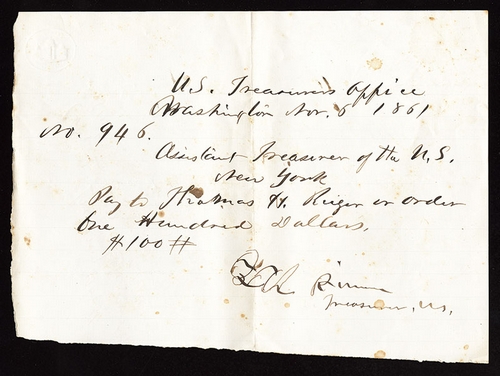 U.S. Treasurers Office
Washington Nov. 6 1861
No. 946.
Assistant Treasurer of the U.S.
New York
Pay to Thomas H. Kuger or order
One Hundred Dollars.
$100 $
Treasurer, U.S.